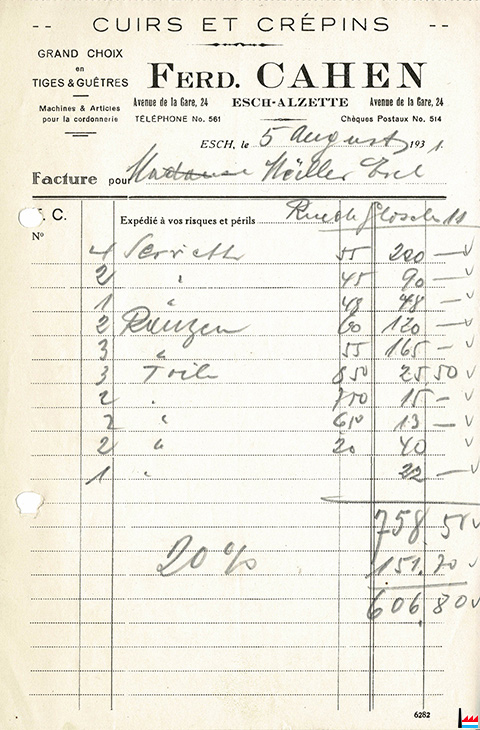 -- CUIRS ET CRÉPINS --
GRAND CHOIX
en
TIGES & GUÊTRES
Machines & Articles
pour la cordonnerie
FERD. CAHEN
Avenue de la Gare, 24 ESCH-ALZETTE Avenue de la Gare, 24
TÉLÉPHONE No. 561 Chèques Postaux No. 514
ESCH, le 5 August 1931.
Facture pour Müller Esch
C. Expédié à vos risques et périls
No
4 55 220 — v
2 " 45 90 — v
1 " 48 48 — v
2 Ranzen 60 120 — v
3 " 55 165 — v
3 Toile 8 50 25,50 v
2 " 7 50 15 - v
2 " 6 50 13 — v
2 " 20 40 v
1 " 22 — v
758,50 v
20 % 151,70 v
606,80 v
6282